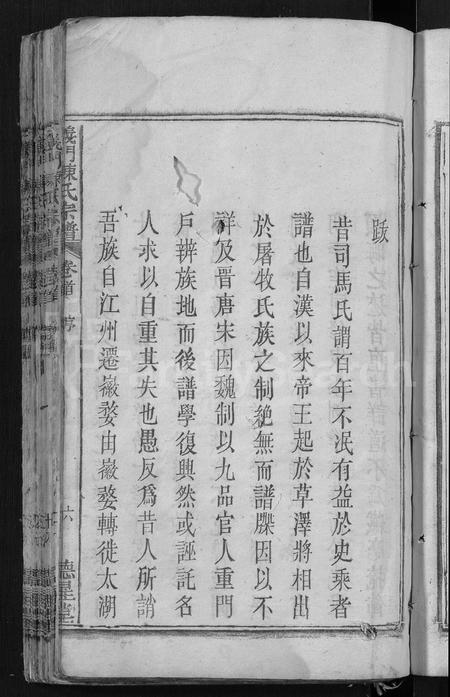 跋
昔司馬氏謂百年不泯有益於史乘者
譜也自漢以來帝王起於草澤將相出
於屠牧氏族之制絶無而譜牒因以不
詳及晋唐宋因魏制以九品官人重門
戶辨族地而後譜學復興然或誣託名
人求以自重其失也愚反爲昔人所誚
吾族自江州遷徽婺由徽婺轉徙太湖
義門陳氏宗譜
卷首
序
六
德星堂